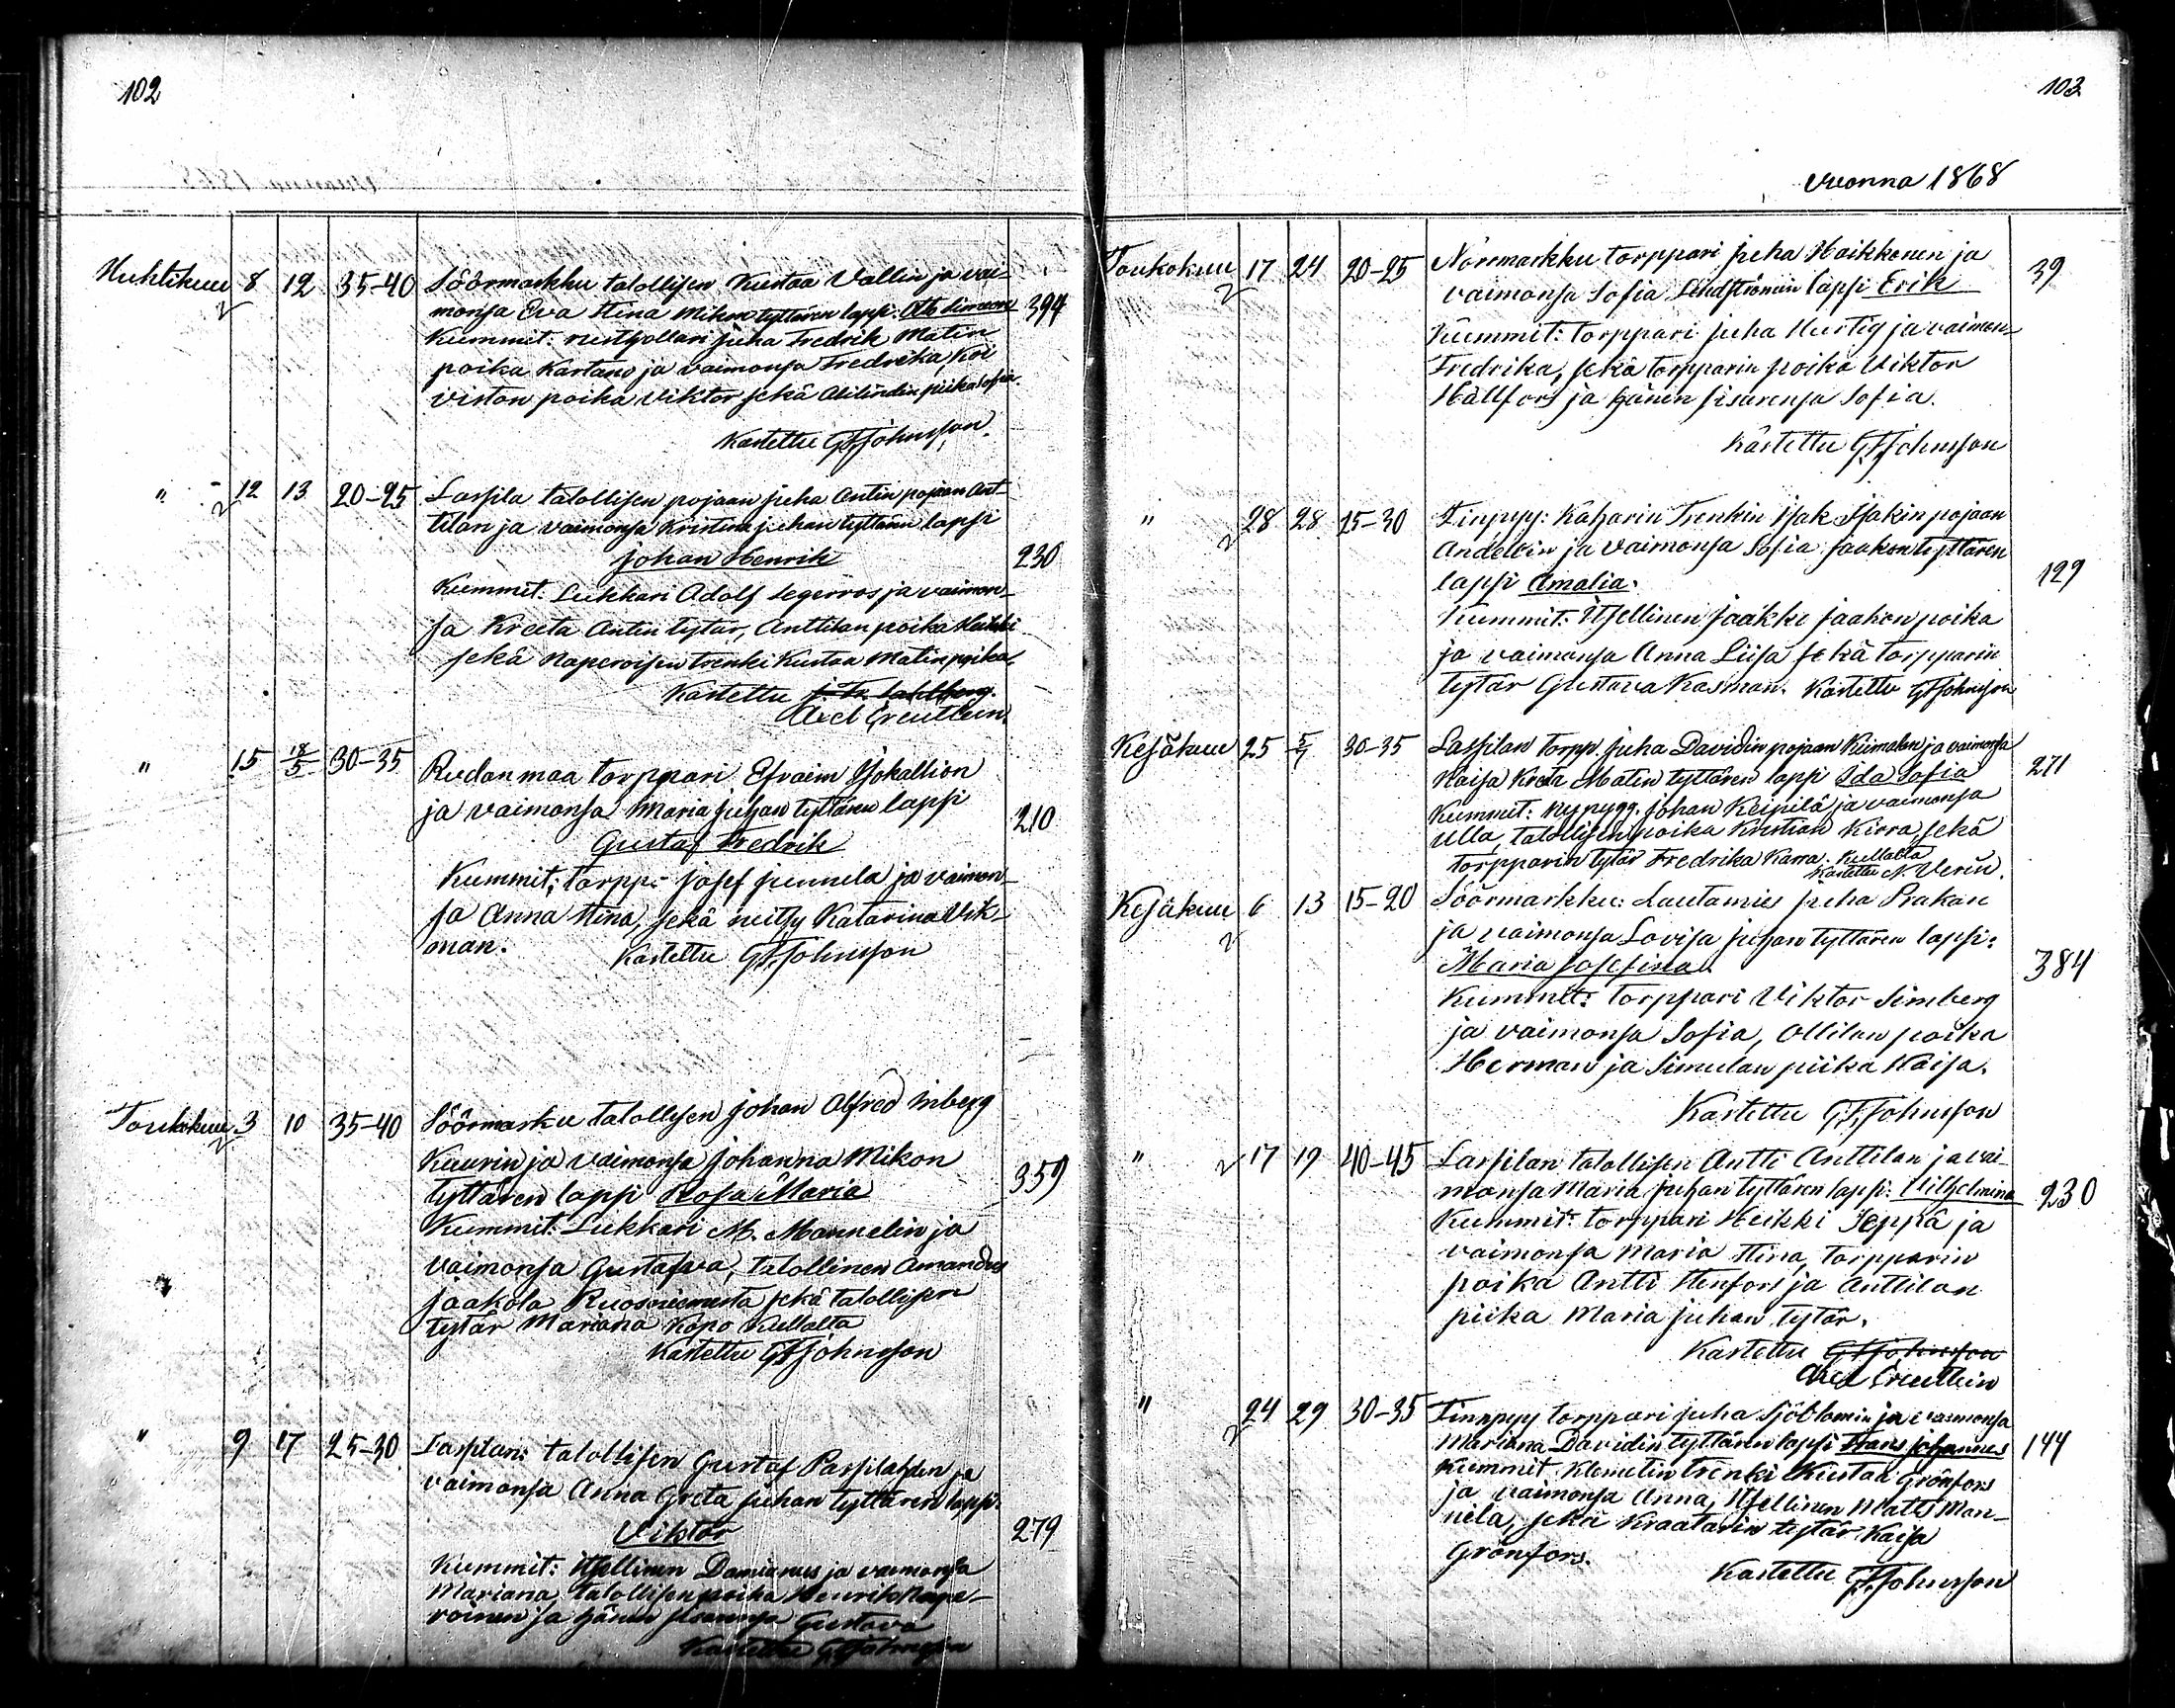 102
Huhtikuu 8 12 35-40 Söörmarkku talollisen Kustaa Vallin ja vai-
monsa Eva Stina Mikon tyttären lapsi: Otto Simeon 394
Kummit: rusthollari Juha Fredrik Matin
poika Kartano ja vaimonsa Fredrika, Koi
viston poika Viktor sekä piika Sofia.
Kastettu G.F. Johnsson.
" 12 13 20-25 Lassila talollisen pojaan Juha Antin pojaan Ant-
tilan ja vaimonsa Kristina Juhan tyttären lapsi
Johan Henrik 230
Kummit: Lukkari Adolf Segerroos ja vaimon-
sa Kreeta Antin tytär, Anttilan poika Heikki
sekä Naperoisen trenki Kustaa Matin poika.
Kastettu J. Fr. Sahlberg.
Axel Creutlein.
" 15 18/5 30-35 Rudanmaa torppari Efraim Yjokallion
ja vaimonsa Maria Juhan tyttären lapsi 210
Gustaf Fredrik
Kummit: torpp. Josef Junnela ja vaimon-
sa Anna Stina, sekä neitsy Katarina Vik-
man. Kastettu G.F. Johnsson
Toukokuu 3 10 35-40 Söörmarku talollisen Johan Alfred Inberg
Kuurin ja vaimonsa Johanna Mikon
tyttären lapsi Rosa Maria 359
Kummit: Lukkari M. Mannelin ja
vaimonsa Gustafava, talollinen Amandus
Jaakola Ruosniemestä sekä talollisen
tytär Mariana Kopo Kullalta
Kastettu G.F. Johnsson
" 9 17 25-30 talollisen Gustaf Passilahden ja
vaimonsa Anna Greta Juhan tyttären lapsi:
Viktor 279
Kummit: Itsellinen Damianus ja vaimonsa
Mariana, talollisen poika Henrik Nape-
roinen ja hänen sisarensa Gustava
Kastettu G.F. Johnsson
103
vuonna 1868
Toukokuu 17 24 20-25 Norrmarkku torppari Juha Haikkonen ja 39
vaimonsa Sofia Lindströmin lapsi Erik
Kummit: torppari Juha Hurtig ja vaimon-
Fredrika, sekä torpparin poika Viktor
Hällfors ja hänen sisarensa Sofia.
Kastettu G.F. Johnsson
" 28 28 25-30 Finpyy: Kätzarin Trenkin Isak Isakin pojaan
Andelin ja vaimonsa Sofia Jaakon tyttären
lapsi Amalia. 129
Kummit: Itsellinen Jaakko Jaakon poika
ja vaimonsa Anna Liisa sekä torpparin
tytär Gustava Kasman. Kastettu G.F. Johnsson
Kesäkuu 25 5/7 30-35 Lassilan torpp. Juha Davidin pojaan Kiimalan ja vaimonsa
Kaisa Kreeta Matin tyttären lapsi Ida Sofia 271
Kummit: Johan Keipilä ja vaimonsa
Ulla, talollisen poika Kristian Kirra, sekä
torpparin tytär Fredrika Karra. Kullalta
Kastettu N. Verin.
Kesäkuu 6 13 15-20 Söörmarkku: Lautamies Juha Prakan
ja vaimonsa Lovisa Juhan tyttären lapsi:
Maria Josefina. 384
Kummit: Torppari Viktor Simberg
ja vaimonsa Sofia, Ollilan poika
Herman ja Simulan piika Kaisa.
Kastettu G.F. Johnsson
" 17 19 40-45 Lassilan talollisen Antti Anttilan ja vai-
monsa Maria Juhan tyttären lapsi: Vilhelmina 230
Kummit: torppari Heikki Seppä ja
vaimonsa Maria Stina, torpparin
poika Antti Stenfors ja Anttilan
piika Maria Juhan tytär.
Kastettu G.F. Johnsson
Axel Creutlein
" 24 29 30-35 Finnpyy torppari Juha Sjöblomin ja vaimonsa
Mariana Davidin tyttären lapsi Frans Johannes 144
Kummit: Klemetin trenki Kustaa Grönfors
ja vaimonsa Anna, Itsellinen Matts Man-
nila, sekä Kraatarin tytär Kaisa
Grönfors.
Kastettu G.F. Johnsson